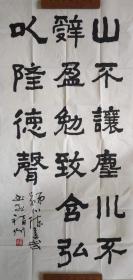 山不讓塵川不
辤盈勉致含弘
以隆徳聲